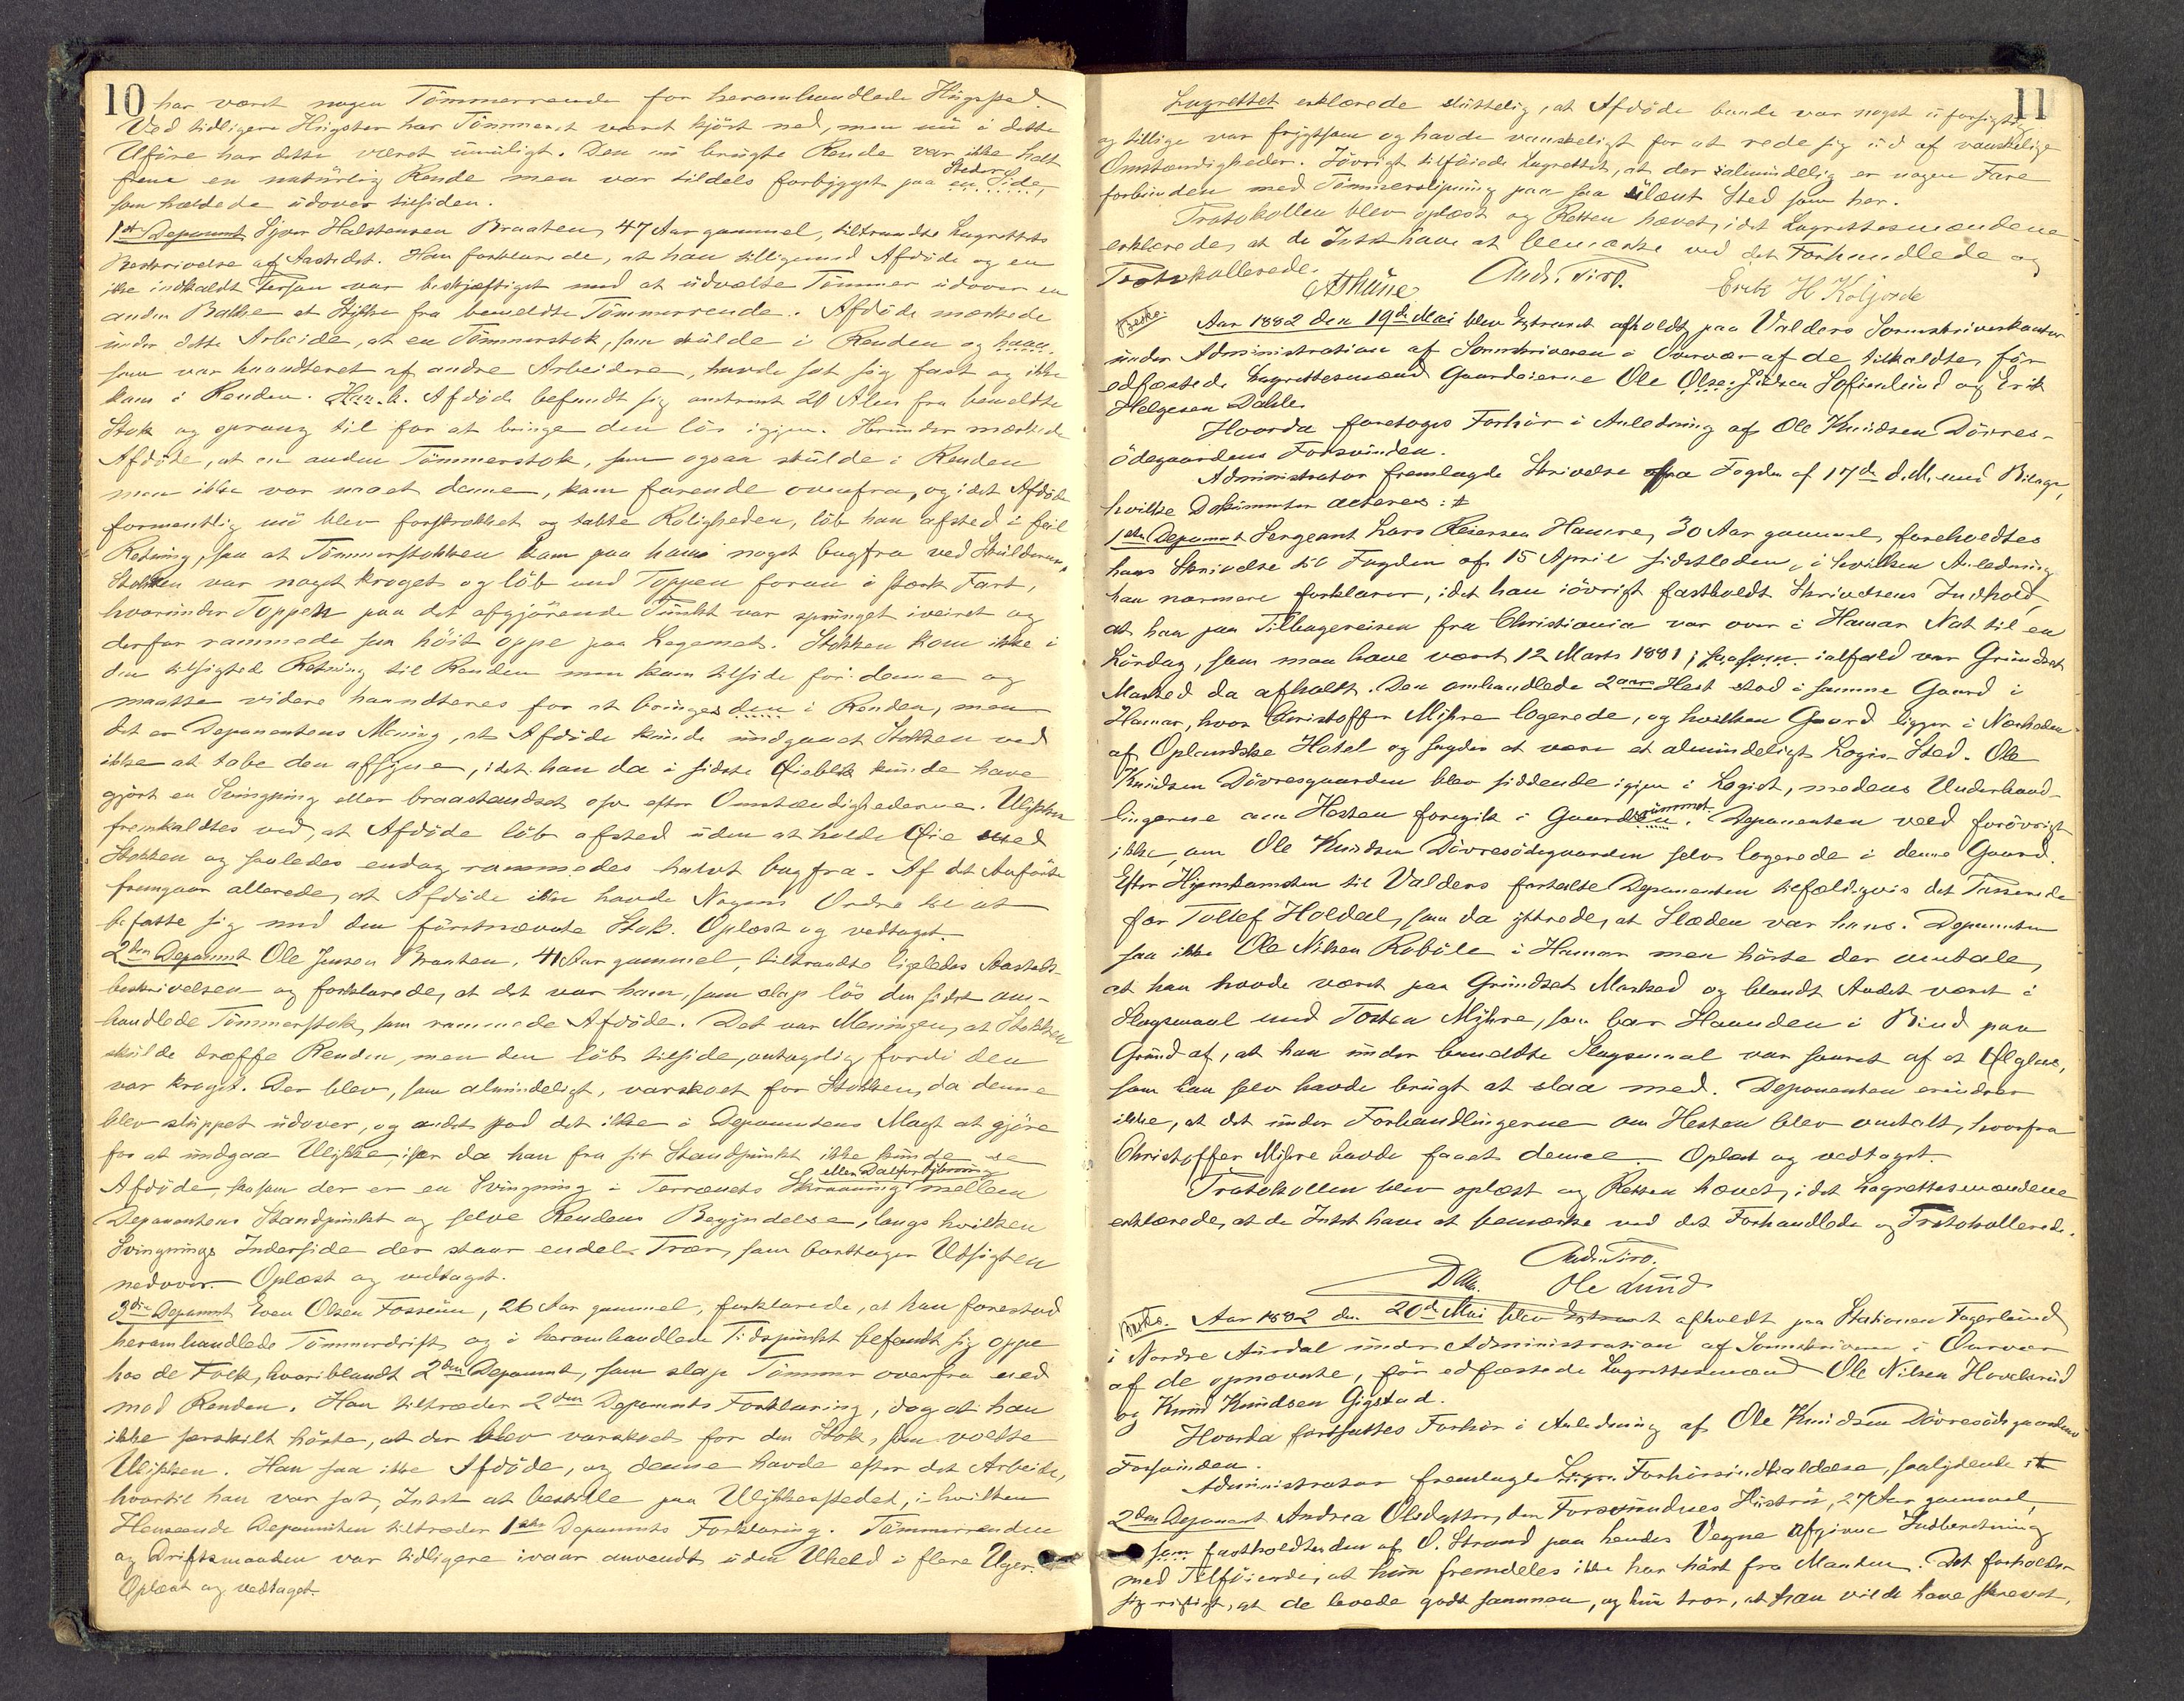 10
har været nogen Tömmerrende for heromhandlede Hugsted.
Ved tidligere Hugster har Tömmeret været kjört ned, men nu i dette
Uföre har dette været umuligt. Den nu brugte Rende var ikke helt
frem en naturlig Rende men var tildels forbygget paa en Side, Steder
som hældede udover tilsiden.
1ste Deponent Syver Halstensen Braaten, 47 Aar gammel, tiltraadte Lagrettets
Beskrivelse af Aastedet. Han forklarede, at han tilligemed Afdöde og en
ikke indkaldt Person var beskjæftiget med at udvælte Tömmer udover en
anden Bakke et Stykke fra bemeldte Tömmerrende. Afdöde mærkede
under dette Arbeide, at en Tömmerstok, som skulde i Renden og haan
som var haandteret af andre Arbeidere, havde sat sig fast og ikke
kom i Renden. Han h. Afdöde befandt sig omtrent 20 Alen fra bemeldte
Stok og sprang til for at bringe den lös igjen. Herunder mærkede
Afdöde, at en anden Tömmerstok, som ogsaa skulde i Renden
men ikke var naaet denne, kom farende ovenfra, og idet Afdöde
formentlig nu blev forskrækket og tabte Roligheden, löb han afsted i feil
Retning, saa at Tömmerstokken kom paa ham noget bagfra ved Skulderen.
Stokken var noget kroget og löb med Toppen foran i stærk Fart,
hvorunder Toppen paa det afgjörende Punkt var sprunget iveiret og
derfor rammede saa höit oppe paa Legemet. Stokken kom ikke i
den tilsigtede Retning til Renden men kom tilside for denne og
maatte videre haandteres for at bringes den i Renden, men
det er Deponentens Mening, at Afdöde kunde undgaaet Stokken ved
ikke at tabe den afsyne, idet han da i sidste Öieblik kunde have
gjort en Svingning eller braastandset osv efter Omstændighederne. Ulykken
fremkaldtes ved, at Afdöde löb afsted uden at holde Öie med
Stokken og saaledes endog rammedes halvt bagfra. Af det Anförte
fremgaar allerede, at Afdöde ikke havde Nogens Ordre til at
befatte sig med den förstnævnte Stok. Oplæst og vedtaget.
2den Deponent Ole Jensen Braaten, 41 Aar gammel, tiltraadte ligeledes Aasteds-
beskrivelsen og forklarede, at det var ham, som slap lös den sidst om-
handlede Tömmerstok, som rammede Afdöde. Det var Meningen, at Stokken
skulde træffe Renden, men den löb tilside, antagelig fordi den
var kroget. Der blev, som almindeligt, varskoet for Stokken, da denne
blev sluppet udover, og andet stod det ikke i Deponentens Magt at gjöre
for at undgaa Ulykke, især da han fra sit Standpunkt ikke kunde se
Afdöde, saasom der er en Svingning i Terrænets Skraaning eller Dalforhjörning mellem
Deponentens Standpunkt og selve Rendens Begyndelse, langs hvilken
Svingnings Inderside der staar endel Trær, som borttager Udsigten
nedover. Oplæst og vedtaget.
3die Deponent Even Olsen Fosseim, 26 Aar gammel, forklarede, at han forestod
heromhandlede Tömmerdrift og i heromhandlede Tidspunkt befandt sig oppe
hos de Folk, hvoriblandt 2den Deponent, som slap Tömmer ovenfra ned
mod Renden. Han tiltræder 2den Deponents Forklaring, dog at han
ikke særskilt hörte, at der blev varskoet for den Stok, som voldte
Ulykken. Han saa ikke Afdöde, og denne havde efter det Arbeide,
hvortil han var sat, Intet at bestille paa Ulykkesstedet, i hvilken
Henseende Deponenten tiltræder 1ste Deponents Forklaring. Tömmerrenden
og Driftsmaaden var tidligere ivaar anvendt uden Uheld i flere Uger.
Oplæst og vedtaget.
11
Lagrettet erklærede sluttelig, at Afdöde baade var noget uforsigtig
og tillige var frygtsom og havde vanskeligt for at rede sig ud af vanskelige
Omstændigheder. Iövrigt tilföiede Lagrettet, at der salmindelig er nogen Fare
forbunden med Tömmerslipning paa saa ulænt Sted som her.
Protokollen blev oplæst og Retten hævet, idet Lagrettesmændene
erklærede, at de Intet have at bemærke ved det Forhandlede og
Protokollerede.
AThune Andr. Piro. Erik H Koljorde
Besko. Aar 1882 den 19de Mai blev Extraret afholdt paa Valders Sorenskriverkontor
under Administration af Sorenskriveren i Overvær af de tilkaldte, för
edfæstede Lagrettesmænd Gaardeierne Ole Olse. Julsen Sofienlund og Erik
Helgesen Dahle.
Hvorda foretoges Forhör i Anledning af Ole Knudsen Dövres-
ödegaardens Forsvinden.
Administrator fremlagde Skrivelse fra Fogden af 17de d.M. med Bilage,
hvilke Dokumenter acteres:
1ste Deponent Sergeant Lars Reiersen Hamre, 30 Aar gammel, foreholdtes
hans Skrivelse til Fogden af 15 April sidstleden, i hvilken Anledning
han nærmere forklarer, idet han iövrigt fastholdt Skrivelsens Indhold,
at han paa Tilbagereisen fra Christiania var over i Hamar Nat til en
Lördag, som maa have været 12 Marts 1881, saasom ialfald var Grundset
Marked da afholdt. Den omhandlede 2aars Hest stod i samme Gaard i
Hamar, hvor Christoffer Myhre logerede, og hvilken Gaard ligger i Nærheden
af Oplandske Hotel og sagdes at være et almindeligt Logis-Sted. Ole
Knudsen Dövresgaarden blev siddende igjen i Logiet, medens Underhand-
lingerne om Hesten foregik i Gaardsrummet. Deponenten veed forövrigt
ikke, om Ole Knudsen Dövresödegaarden selv logerede i denne Gaard.
Efter Hjemkomsten til Valders fortalte Deponenten tilfældigvis det Passerede
for Tollef Holdal, som da yttrede, at Slæden var hans. Deponenten
saa ikke Ole Nilsen Roböle i Hamar men hörte der omtale,
at han havde været paa Grundset Marked og blandt Andet været i
Slagsmaal med Tosten Myhre, som bar Haanden i Bind paa
Grund af, at han under bemeldte Slagsmaal var saaret af et Ölglas,
som han selv havde brugt at slaa med. Deponenten erindrer
ikke, at det under Forhandlingerne om Hesten blev omtalt, hvorfra
Christoffer Myhre havde faaet denne. Oplæst og vedtaget.
Protokollen blev oplæst og Retten hævet, idet Lagrettesmændene
erklærede, at de Intet have at bemærke ved det Forhandlede og Protokollerede.
Andr. Piro.
Ole Lund
Besko. Aar 1882 den 20de Mai blev Extraret afholdt paa Stationen Fagerlund
i Nordre Aurdal under Administration af Sorenskriveren i Overvær
af de opnævnte, för edfæstede Lagrettesmænd Ole Nilsen Hovelsrud
og Knud Knudsen Gigstad.
Hvorda fortsattes Forhör i Anledning af Ole Knudsen Dövresödegaardens
Forsvinden.
Administrator fremlagde Forhörsindkaldelse, saalydende
2den Deponent Andrea Olsdatter, den Forsvundnes Hustru, 27 Aar gammel,
som fastholdt den af O. Strand paa hendes Vegne afgivne Indberetning
med Tilföiende, at hun fremdeles ikke har hört fra Manden. Det forholder
sig rigtigt, at de levede godt sammen, og hun tror, at han vilde have skrevet,